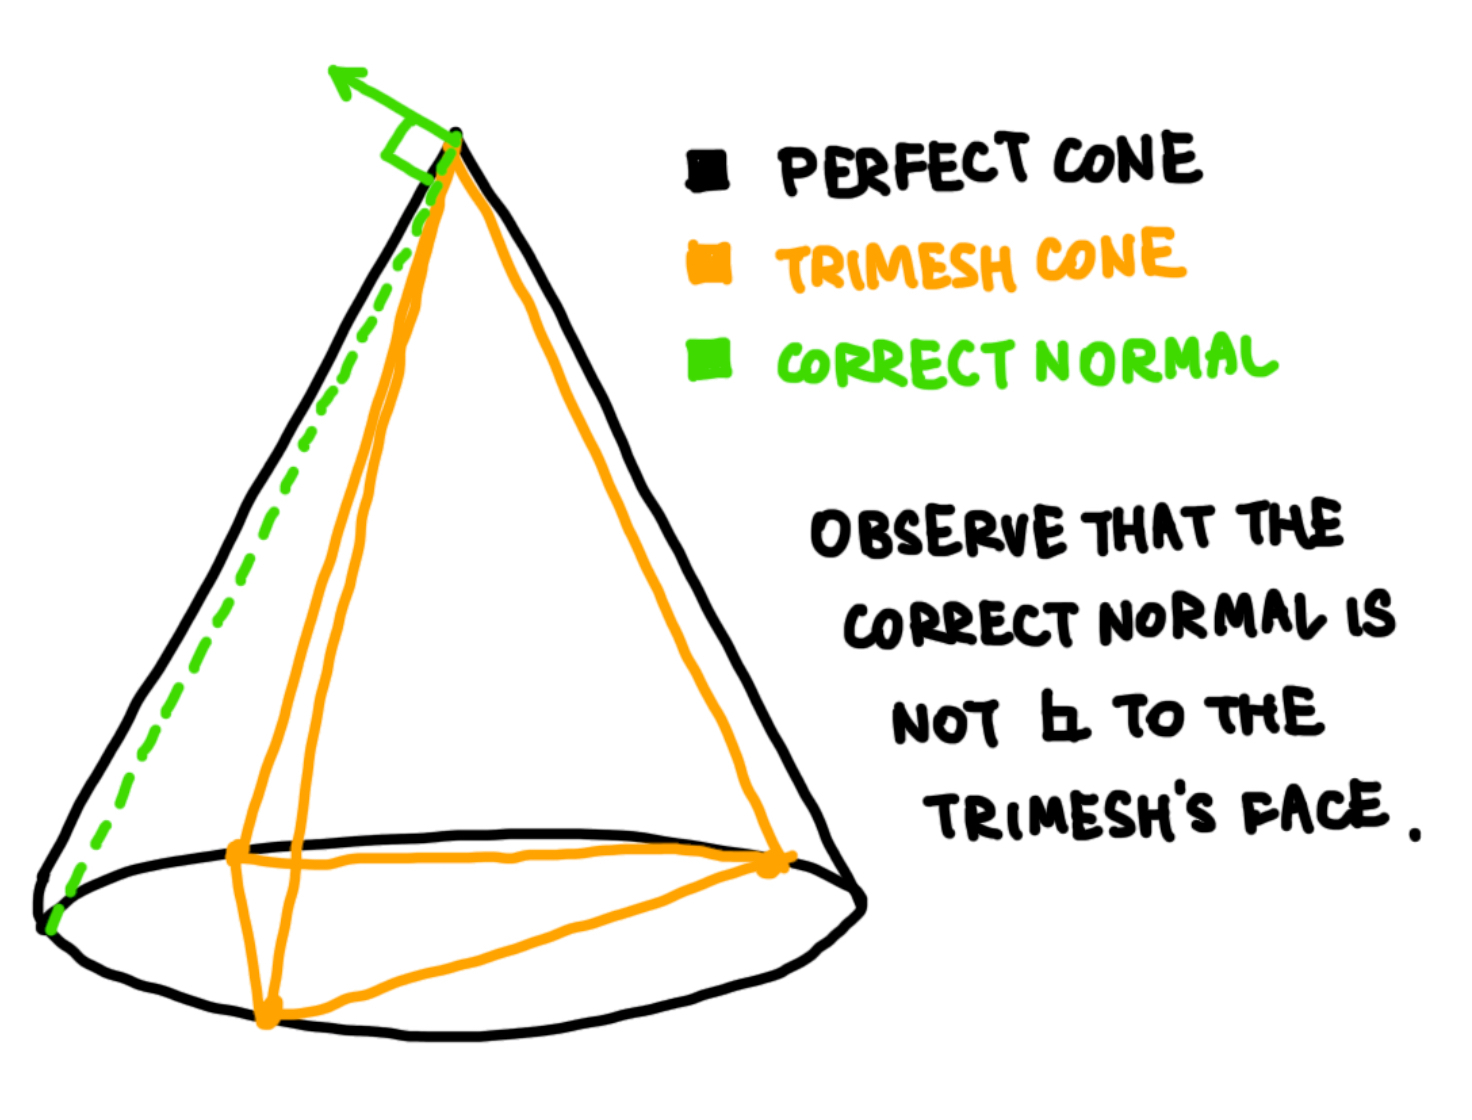 PERFECT CONE
TRIMESH CONE
CORRECT NORMAL
OBSERVE THAT THE
CORRECT NORMAL IS
NOT ⊾ TO THE
TRIMESH'S FACE.